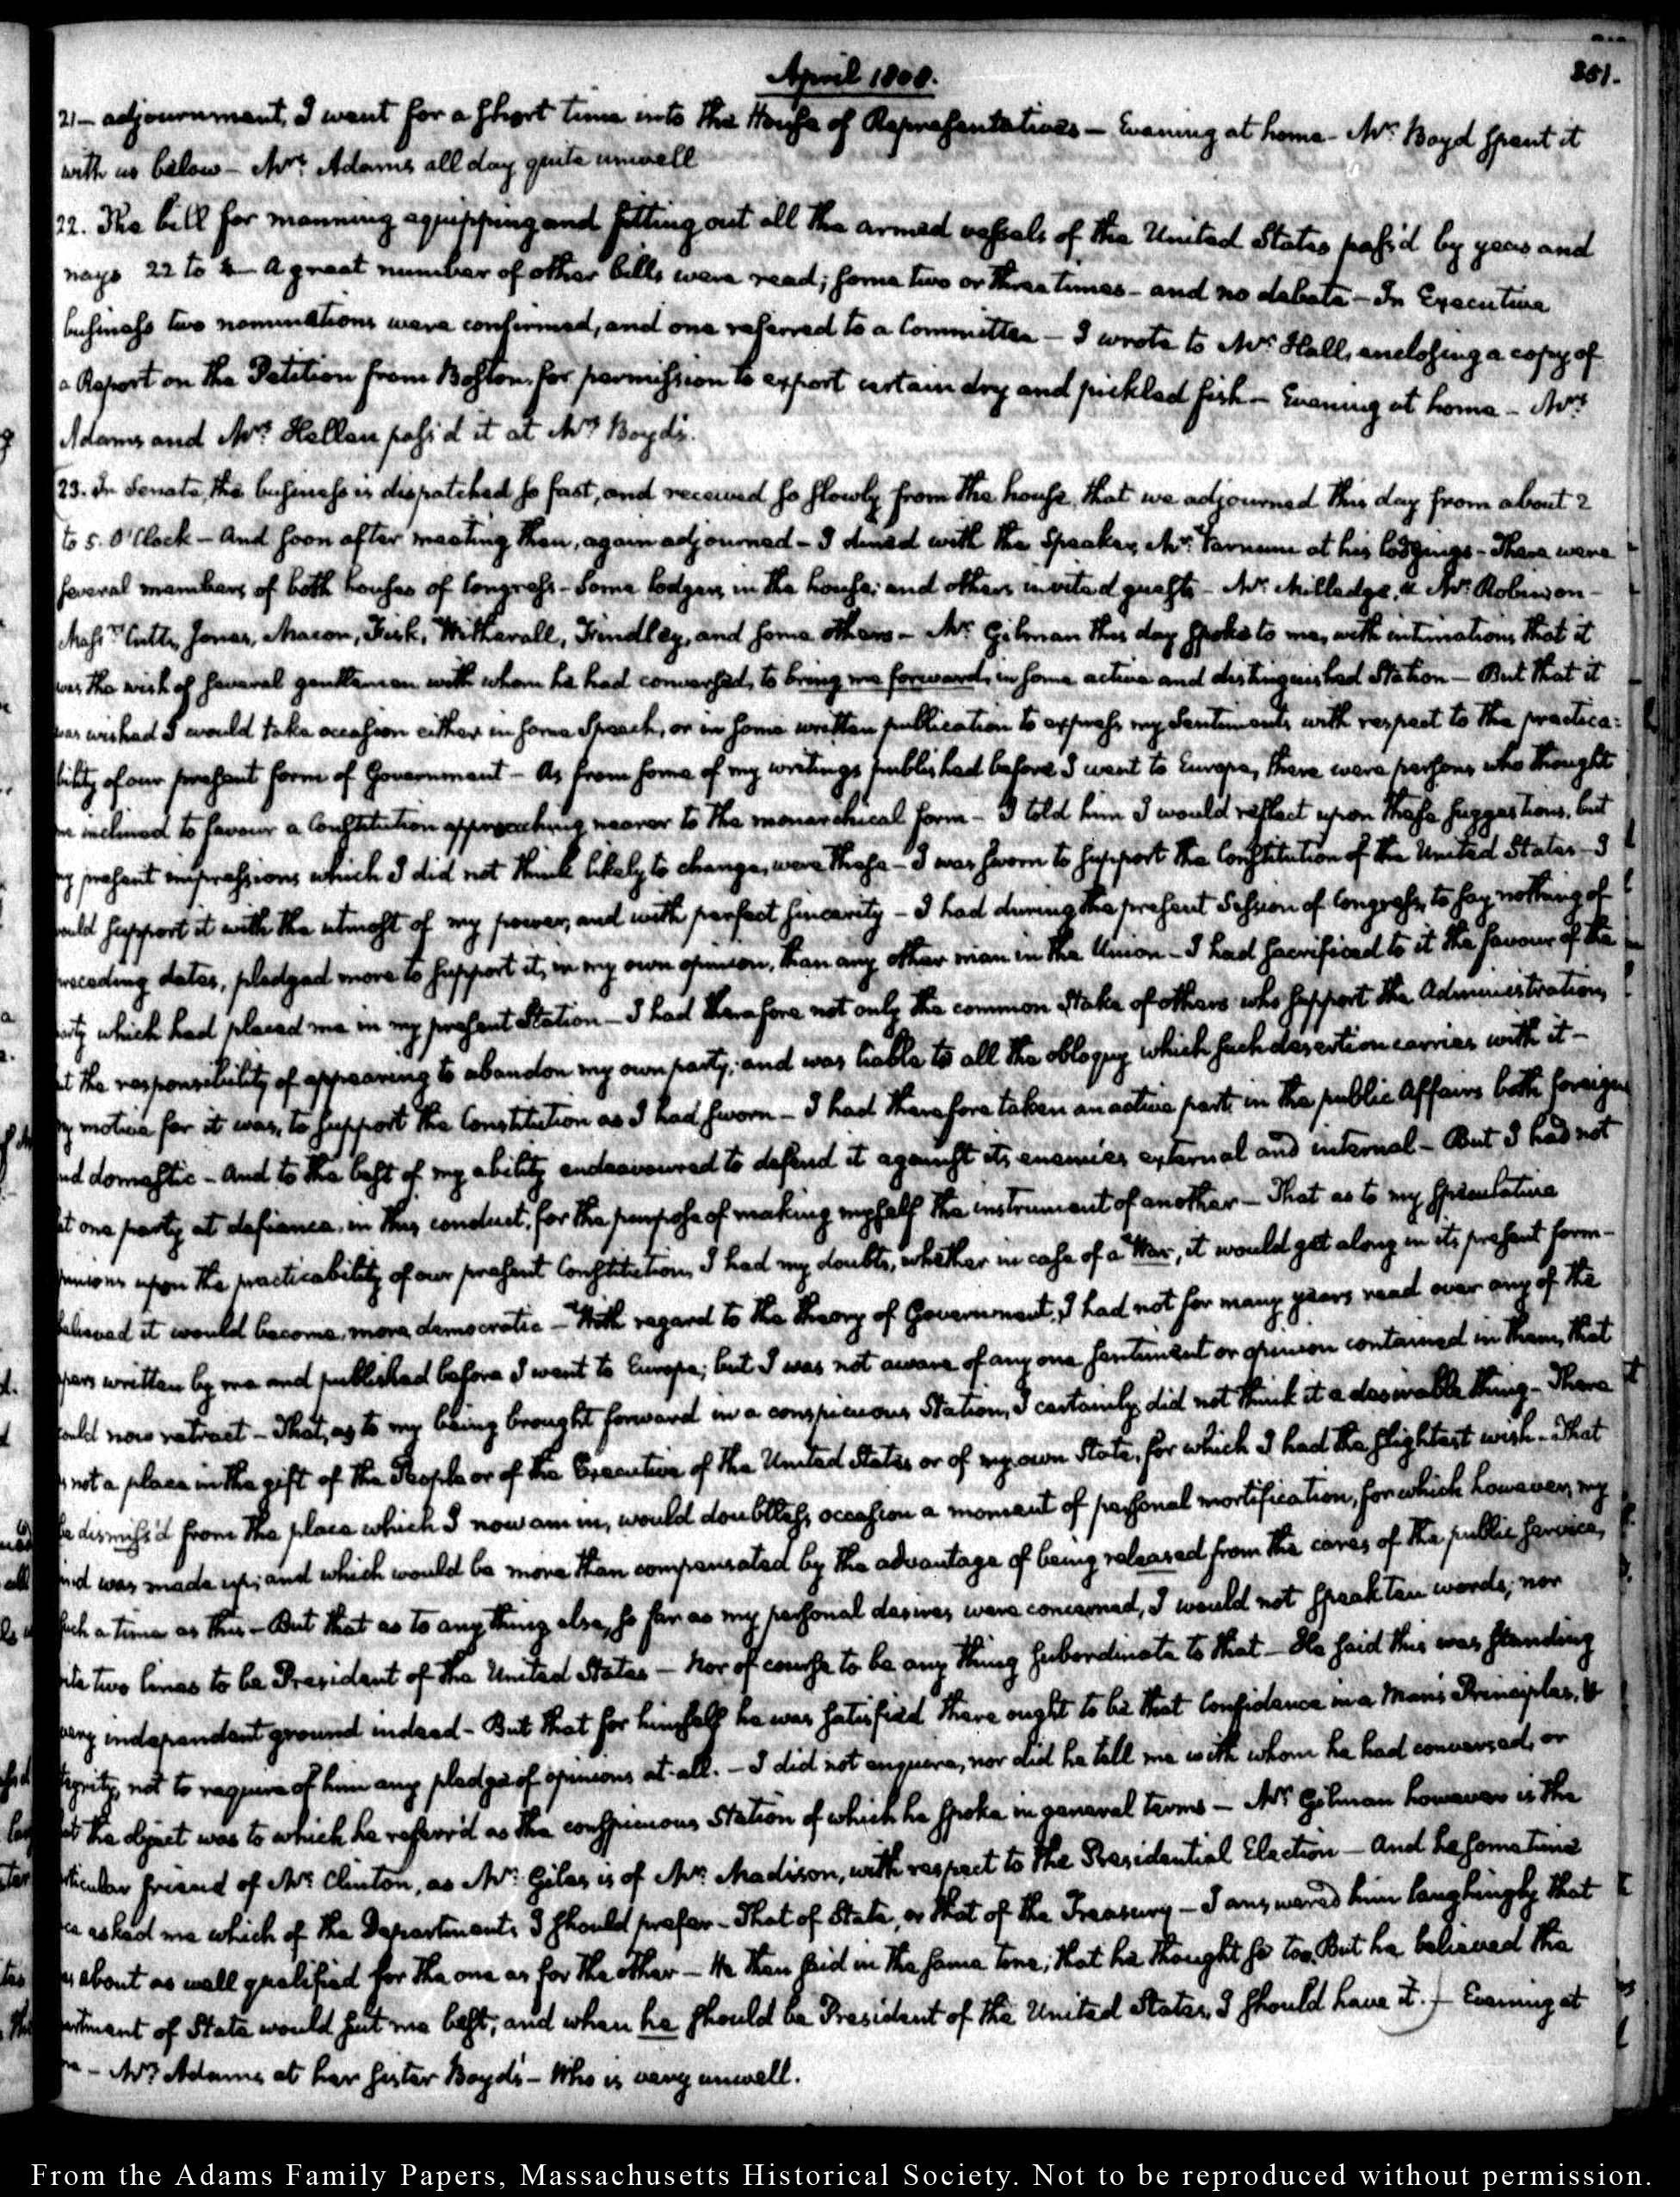 April 1808.
351.
21— adjournment, I went for a short time into the House of Representatives — Evening at home — Mr. Boyd spent it
with us below — Mrs. Adams all day quite unwell
22. The bill for manning equipping and fitting out all the armed vessels of the United States pass'd by yeas and
nays 22 to — A great number of other bills were read; some two or three times — and no debate — In Executive
business two nominations were confirmed, and one referred to a Committee — I wrote to Mr. Hall, enclosing a copy of
a Report on the Petition from Boston, for permission to export certain dry and pickled fish — Evening at home — Mrs.
Adams and Mrs. Hellen pass'd it at Mrs. Boyd's.
23. In Senate, the business is dispatched so fast, and received so slowly from the house, that we adjourned this day from about 2
to 5. O'Clock — And soon after meeting then, again adjourned — I dined with the Speaker, Mr. Varnum at his lodgings — There were
several members of both houses of Congress — Some lodgers in the house; and others invited guests — Mr. Milledge, & Mr. Robinson —
Messrs. Cutts, Jones, Macon, Fisk, Witherall, Findley, and some others — Mr. Gilman this day spoke to me, with intimations that it
was the wish of several gentlemen with whom he had conversed, to bring me forward, in some active and distinguished Station — But that it
was wished I would take occasion either in some Speech, or in some written publication to express my Sentiments with respect to the practica:
bility of our present form of Government — As from some of my writings published before I went to Europe, there were persons who thought
me inclined to favour a Constitution approaching nearer to the monarchical form — I told him I would reflect upon these suggestions, but
my present impressions which I did not think likely to change, were these — I was sworn to support the Constitution of the United States — I
would support it with the utmost of my power, and with perfect sincerity — I had during the present Session of Congress, to say nothing of
preceding dates, pledged more to support it, in my own opinion, than any other man in the Union — I had sacrificed to it the favour of the
party which had placed me in my present Station — I had therefore not only the common Stake of others who support the Administration,
but the responsibility of appearing to abandon my own party; and was liable to all the obloquy which such desertion carries with it —
my motive for it was, to support the Constitution as I had sworn — I had therefore taken an active part in the public Affairs both foreign
and domestic — And to the best of my ability endeavoured to defend it against its enemies external and internal — But I had not
set one party at defiance, in this conduct, for the purpose of making myself the instrument of another — That as to my speculative
opinions upon the practicability of our present Constitution, I had my doubts, whether in case of a War, it would get along in its present form —
believed it would become, more democratic — With regard to the theory of Government, I had not for many years read over any of the
papers written by me and published before I went to Europe; but I was not aware of any one sentiment or opinion contained in them, that
would now retract — That, as to my being brought forward in a conspicuous Station, I certainly did not think it a desirable thing — There
is not a place in the gift of the People or of the Executive of the United States or of my own State, for which I had the slightest wish — That
be dismiss'd from the place which I now am in, would doubtless, occasion a moment of personal mortification, for which however, my
mind was made up; and which would be more than compensated by the advantage of being released from the cares of the public service,
such a time as this — But that as to any thing else, so far as my personal desires were concerned, I would not speak ten words, nor
write two lines to be President of the United States — Nor of course to be any thing subordinate to that — He said this was standing
very independent ground indeed — But that for himself he was satisfied there ought to be that Confidence in a Man's Principles, &
tegrity, not to require of him any pledge of opinions at all. — I did not enquire, nor did he tell me with whom he had conversed, or
what the object was to which he referr'd as the conspicuous Station of which he spoke in general terms — Mr. Gilman however is the
particular friend of Mr. Clinton, as Mr. Giles is of Mr. Madison, with respect to the Presidential Election — And he sometime
asked me which of the Departments I should prefer — That of State, or that of the Treasury — I answered him laughingly that
about as well qualified for the one as for the other — He then said in the same tone, that he thought so too, But he believed the
Department of State would suit me best, and when he should be President of the United States, I should have it. — Evening at
— Mrs. Adams at her sister Boyd's — Who is very unwell.
From the Adams Family Papers, Massachusetts Historical Society. Not to be reproduced without permission.